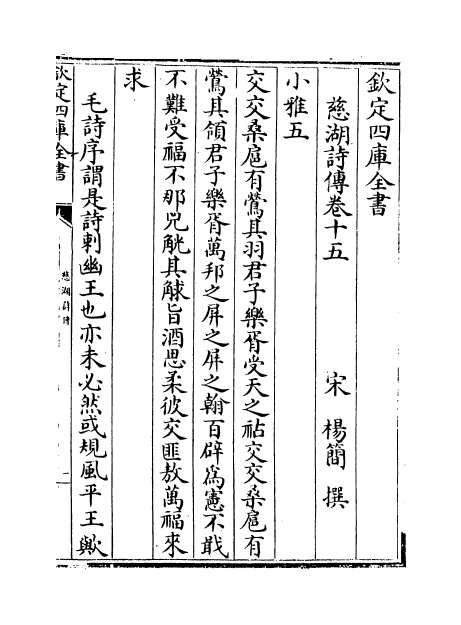 欽定四庫全書
慈湖詩傳卷十五　宋　楊簡　撰
小雅五
交交桑扈有鶯其羽君子樂胥受天之祜交交桑扈有
鶯其領君子樂胥萬邦之屏之屏之翰百辟為憲不戢
不難受福不那兕觥其觩旨酒思柔彼交匪敖萬福來
求
毛詩序謂是詩刺幽王也亦未必然或規風平王歟
欽定四庫全書
慈湖詩傳
一